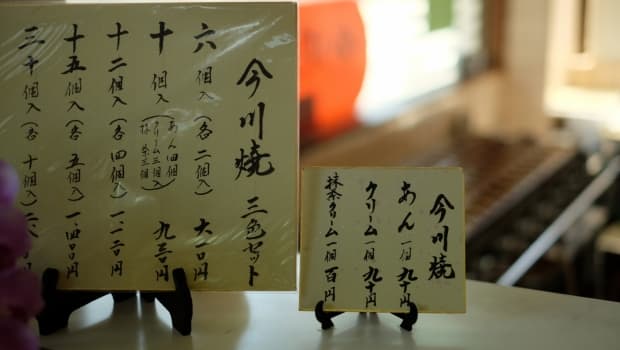 今川焼 三色セット
六個入(各二個入)
十個入(あん四個 クリーム三個 抹茶三個) 九三〇円
十二個入(各四個入) 一一二〇円
十五個入(各五個入) 一四〇〇円
三十個入(各十個入) 二八
今川焼
あん 一個 九十円
クリーム 一個 九十円
抹茶クリーム 一個 百円